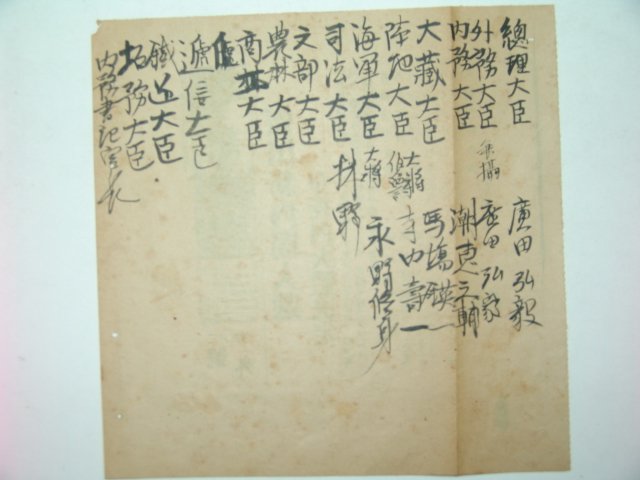 總理大臣 廣田弘毅
外務大臣 兼攝 廣田弘毅
内務大臣 潮惠之輔
大藏大臣 馬場鍈一
陸地大臣 大將 伯爵 寺內壽一
海軍大臣 大將 永野修身
司法大臣 林 野
文部大臣
農林大臣
商工大臣
遞信大臣
鐵道大臣
拓務大臣
内務書記官長